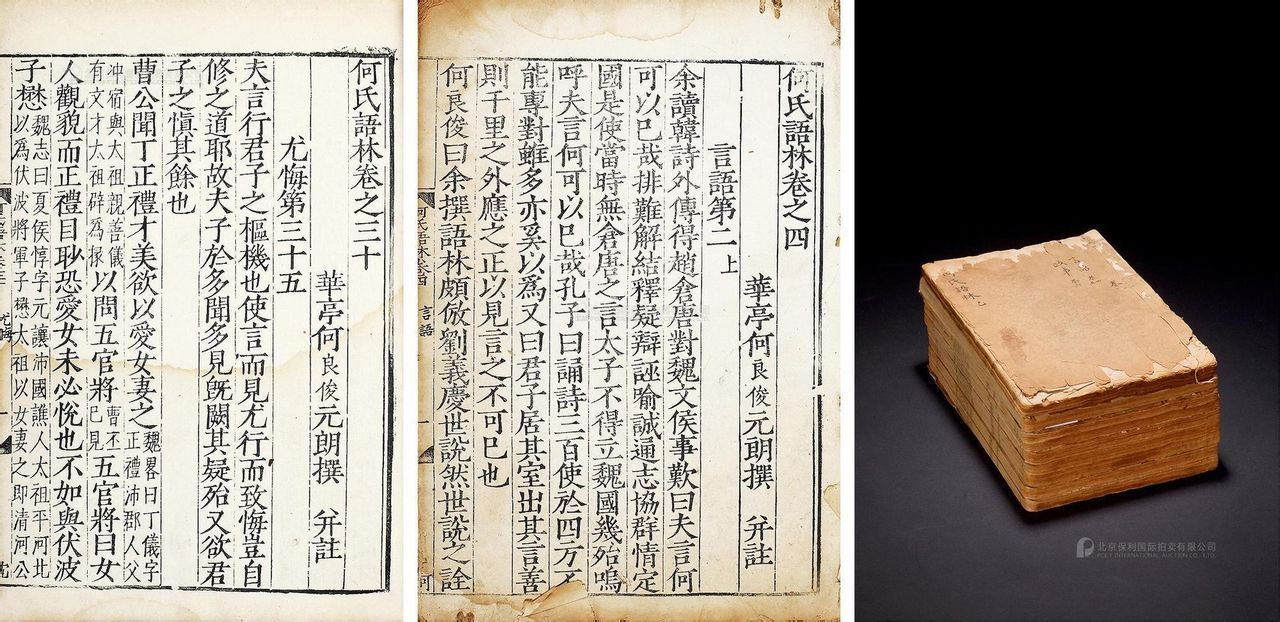 何氏語林卷之三十
華亭何良俊元朗撰 并註
尤悔第三十五
夫言行君子之樞機也使言而見尤行而致悔豈自
修之道耶故夫子於多聞多見旣闕其疑殆又欲君
子之慎其餘也
曹公聞丁正禮才美欲以愛女妻之魏畧曰丁儀字正禮沛郡人父
冲宿與太祖親善儀有文才太祖辟爲掾以問五官將曹丕已見五官將曰女
人觀貌而正禮目眇恐愛女未必恱也不如與伏波
子懋魏志曰夏侯惇字元讓沛國譙人太祖平河北以爲伏波將軍子懋太祖以女妻之即清河公
尤悔
何氏語林卷之四
華亭何良俊元朗撰 并註
言語第二上
余讀韓詩外傳得趙倉唐對魏文侯事歎曰夫言何
可以已哉排難解結釋疑辯誣喻誠通志協群情定
國是使當時無倉唐之言太子不得立魏國幾殆嗚
呼夫言何可以已哉孔子曰誦詩三百使於四方不
能專對雖多亦奚以為又曰君子居其室出其言善
則千里之外應之正以見言之不可已也
何良俊曰余撰語林頗倣劉義慶世說然世說之詮
何氏語林卷四
言語
一
何
何氏語林
北京保利国际拍卖有限公司
POLY INTERNATIONAL AUCTION CO., LTD.